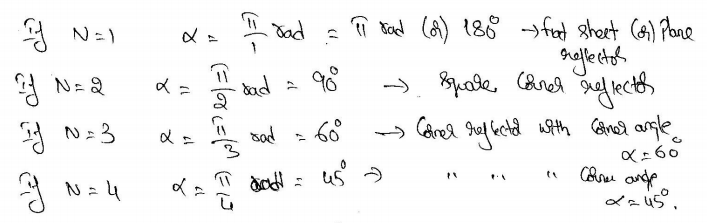 If N=1 α = π/1 rad = π rad (or) 180° → flat sheet (or) Plane
reflector
If N=2 α = π/2 rad = 90° → Square Corner reflector
If N=3 α = π/3 rad = 60° → Corner reflector with Corner angle
α=60°
If N=4 α = π/4 rad = 45° → " " " Corner angle
α=45°.